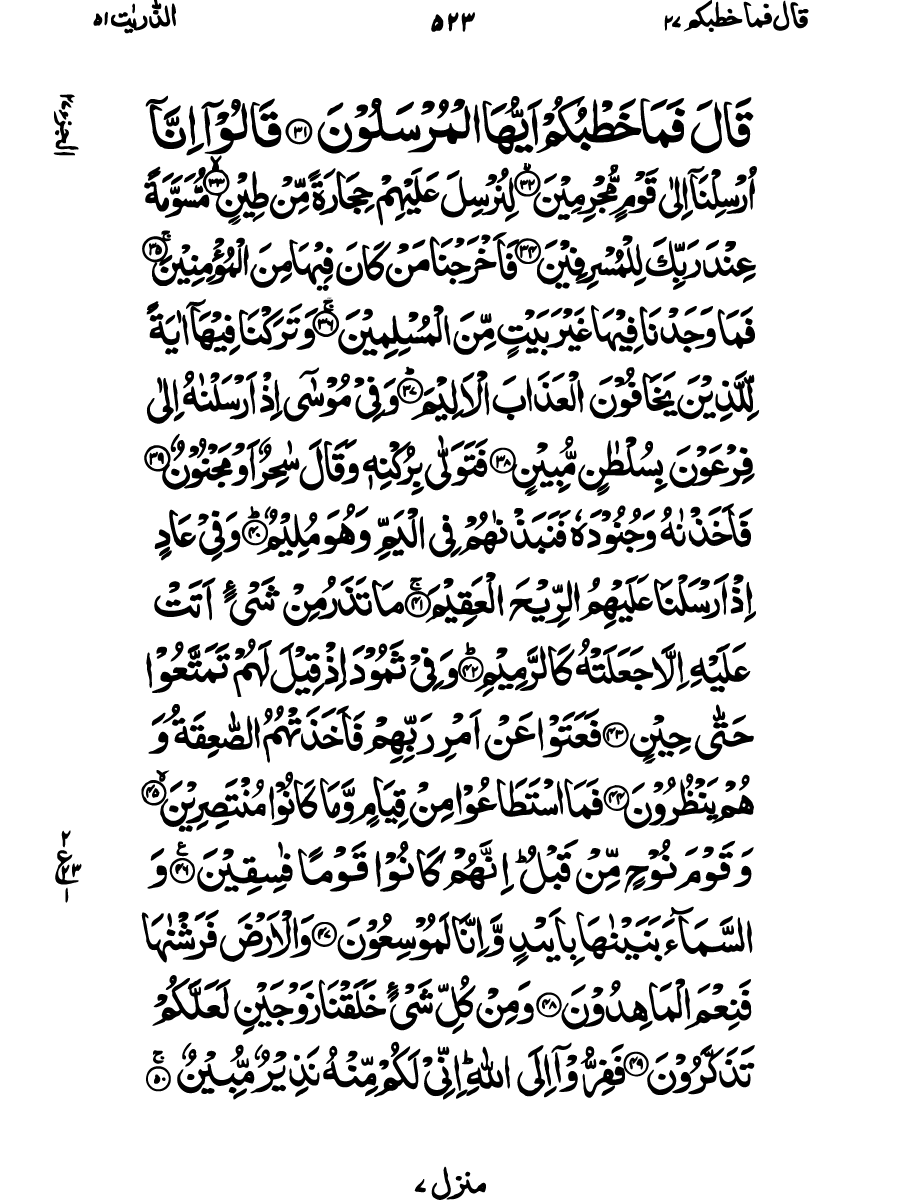 قال فما خطبكم ٢٧
٥٢٣
الذّٰريٰت ٥١
الجزء ٢٧
قَالَ فَمَا خَطْبُكُمْ اَيُّهَا الْمُرْسَلُوْنَ ﴿٣١﴾ قَالُوْۤا اِنَّاۤ
اُرْسِلْنَاۤ اِلٰى قَوْمٍ مُّجْرِمِيْنَ ﴿٣٢﴾ؕ لِنُرْسِلَ عَلَيْهِمْ حِجَارَةً مِّنْ طِيْنٍ ﴿٣٣﴾ۙ مُّسَوَّمَةً
عِنْدَ رَبِّكَ لِلْمُسْرِفِيْنَ ﴿٣٤﴾ فَاَخْرَجْنَا مَنْ كَانَ فِيْهَا مِنَ الْمُؤْمِنِيْنَ ﴿٣٥﴾ۚ
فَمَا وَجَدْنَا فِيْهَا غَيْرَ بَيْتٍ مِّنَ الْمُسْلِمِيْنَ ﴿٣٦﴾ۚ وَ تَرَكْنَا فِيْهَاۤ اٰيَةً
لِّلَّذِيْنَ يَخَافُوْنَ الْعَذَابَ الْاَلِيْمَ ﴿٣٧﴾ؕ وَ فِيْ مُوْسٰۤى اِذْ اَرْسَلْنٰهُ اِلٰى
فِرْعَوْنَ بِسُلْطٰنٍ مُّبِيْنٍ ﴿٣٨﴾ فَتَوَلّٰى بِرُكْنِهٖ وَ قَالَ سٰحِرٌ اَوْ مَجْنُوْنٌ ﴿٣٩﴾
فَاَخَذْنٰهُ وَ جُنُوْدَهٗ فَنَبَذْنٰهُمْ فِي الْيَمِّ وَ هُوَ مُلِيْمٌ ﴿٤٠﴾ؕ وَ فِيْ عَادٍ
اِذْ اَرْسَلْنَا عَلَيْهِمُ الرِّيْحَ الْعَقِيْمَ ﴿٤١﴾ۚ مَا تَذَرُ مِنْ شَيْءٍ اَتَتْ
عَلَيْهِ اِلَّا جَعَلَتْهُ كَالرَّمِيْمِ ﴿٤٢﴾ؕ وَ فِيْ ثَمُوْدَ اِذْ قِيْلَ لَهُمْ تَمَتَّعُوْا
حَتّٰى حِيْنٍ ﴿٤٣﴾ فَعَتَوْا عَنْ اَمْرِ رَبِّهِمْ فَاَخَذَتْهُمُ الصّٰعِقَةُ وَ
هُمْ يَنْظُرُوْنَ ﴿٤٤﴾ فَمَا اسْتَطَاعُوْا مِنْ قِيَامٍ وَّ مَا كَانُوْا مُنْتَصِرِيْنَ ﴿٤٥﴾ۙ
وَ قَوْمَ نُوْحٍ مِّنْ قَبْلُ ؕ اِنَّهُمْ كَانُوْا قَوْمًا فٰسِقِيْنَ ﴿٤٦﴾ع وَ
٢ ع ٢٣ ١
السَّمَآءَ بَنَيْنٰهَا بِاَيْىدٍ وَّ اِنَّا لَمُوْسِعُوْنَ ﴿٤٧﴾ وَ الْاَرْضَ فَرَشْنٰهَا
فَنِعْمَ الْمَاهِدُوْنَ ﴿٤٨﴾ وَ مِنْ كُلِّ شَيْءٍ خَلَقْنَا زَوْجَيْنِ لَعَلَّكُمْ
تَذَكَّرُوْنَ ﴿٤٩﴾ فَفِرُّوْۤا اِلَى اللّٰهِ ؕ اِنِّيْ لَكُمْ مِّنْهُ نَذِيْرٌ مُّبِيْنٌ ﴿٥٠﴾ۚ
منزل ٧